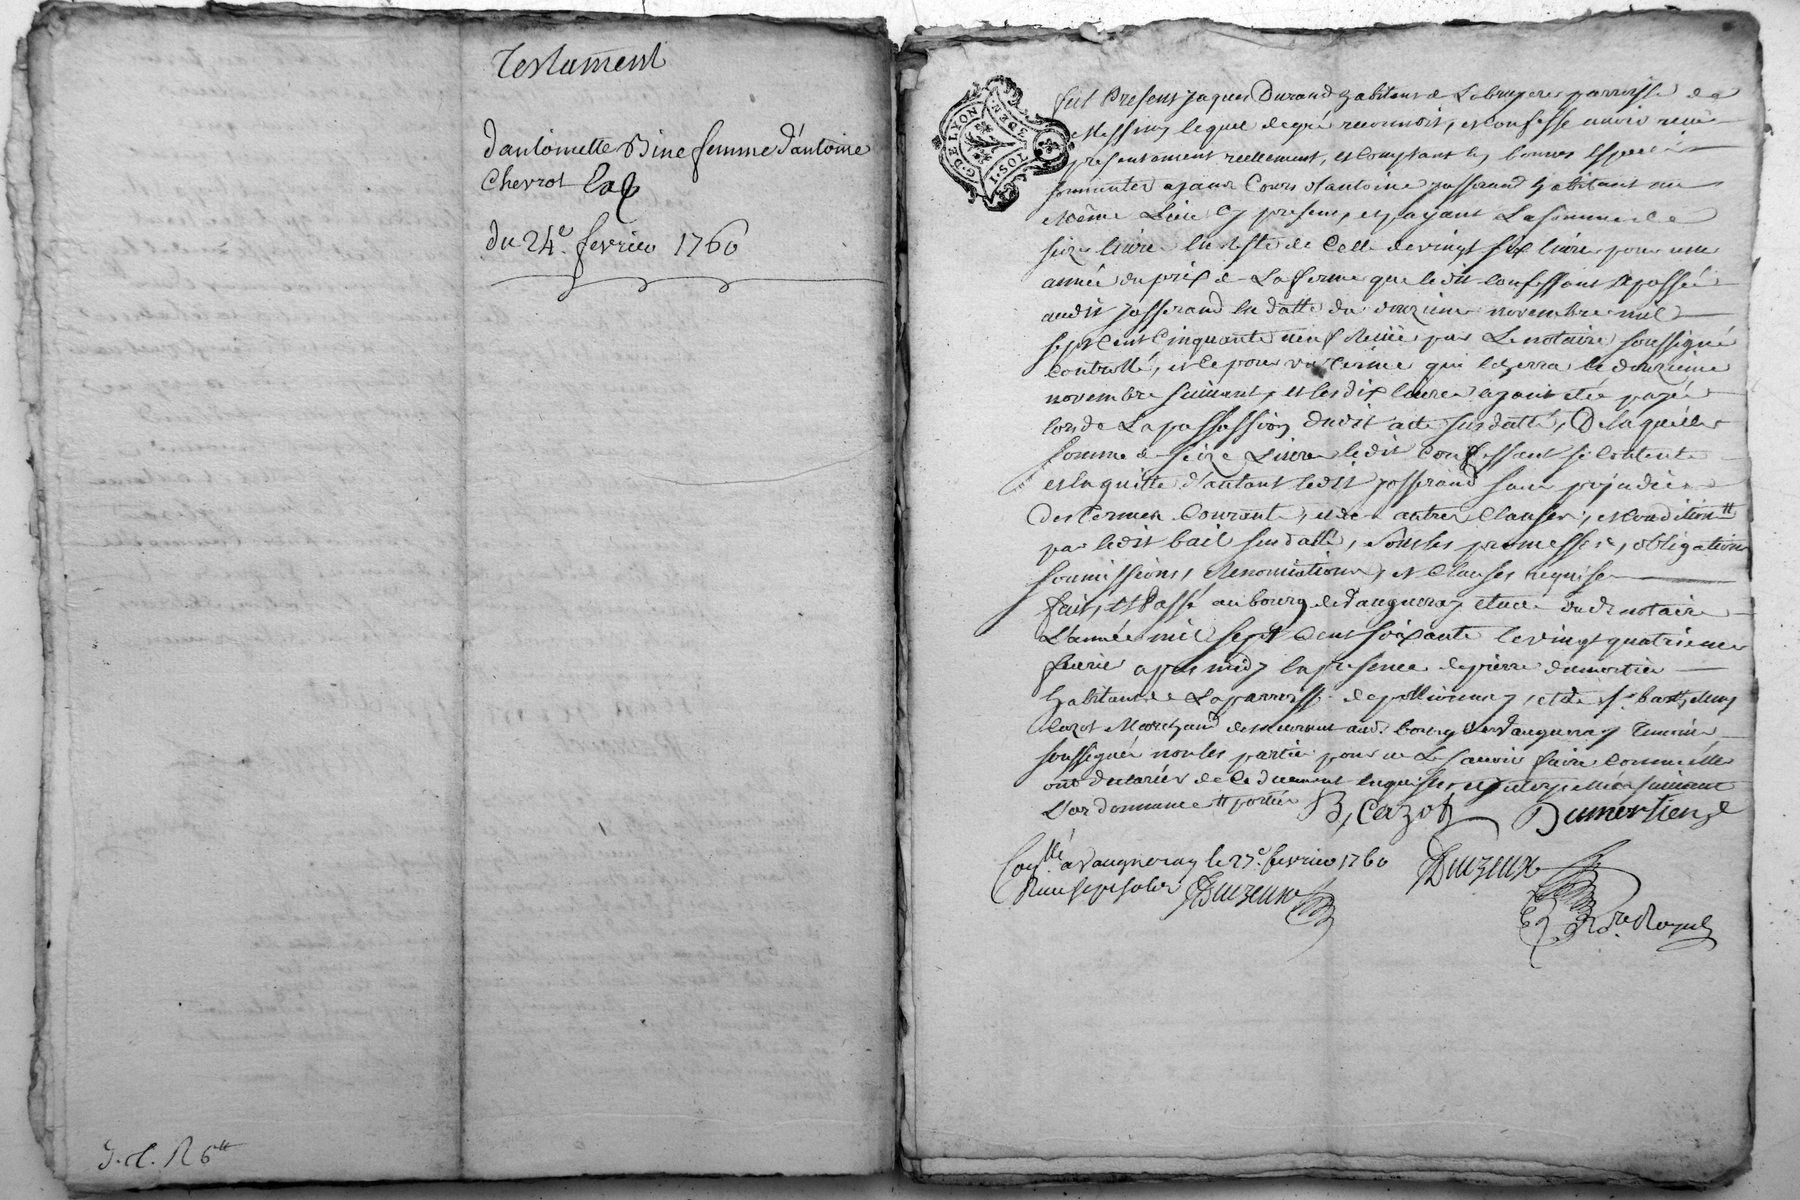 Testament
d'antoinette Bine femme d'antoine
Chevrot
du 24e. fevrier 1760
J. d. R 6tt
G. DE LYON
3 DE R.
I. SOS
fut Present Jaques Durand habitant de Labruyere parroisse de
Messimy lequel de gré reconnoit, et confesse avoir receu
presentement reellement, et comptant en bonnes especes
ayant Cours d'antoine jasserand habitant au
Même Lieu cy present, et payant La somme de
seize livres en reste de Celle de vingt six livres pour une
année du prix de La ferme que ledit confessant a passée
audit jasserand en datte du douzieme novembre mil
sept Cent Cinquante neuf Receue par Le notaire soussigné
Controllé, et ce pour terme qui echerra le douzieme
novembre suivant, et les dix livres ayant été payée
lors de La passassion dudit acte susdatté, De laquelle
somme de seize Livres ledit Confessant se Contente
et en quitte d'autant ledit jasserand sans prejudice
des termes Courants, et de autres Clauses, et Conditions
par ledit bail susdatté, sous les promesses, obligations
soumissions, Renonciations, et Clauses requises
fait, et Passé au bourg de Vaugneray etude dudt notaire
L'année mil sept Cent soixante le vingt quatrieme
fevrier apres midy en presence de pierre dumortier
habitant de La parroisse de pollionnay, et de sr. barthelemy
Cazot Marchand demeurant aud. bourg de Vaugneray temoins
soussignés non les parties pour ne Le savoir faire comme elles
ont declarées de Ce duement enquises, et interpellées suivant
L'ordonnance
B, Cazot Dumortier
Conllé a Vaugneray le 27e. fevrier 1760
Reçu sept sols Duzeux
Duzeux
Nre Royal